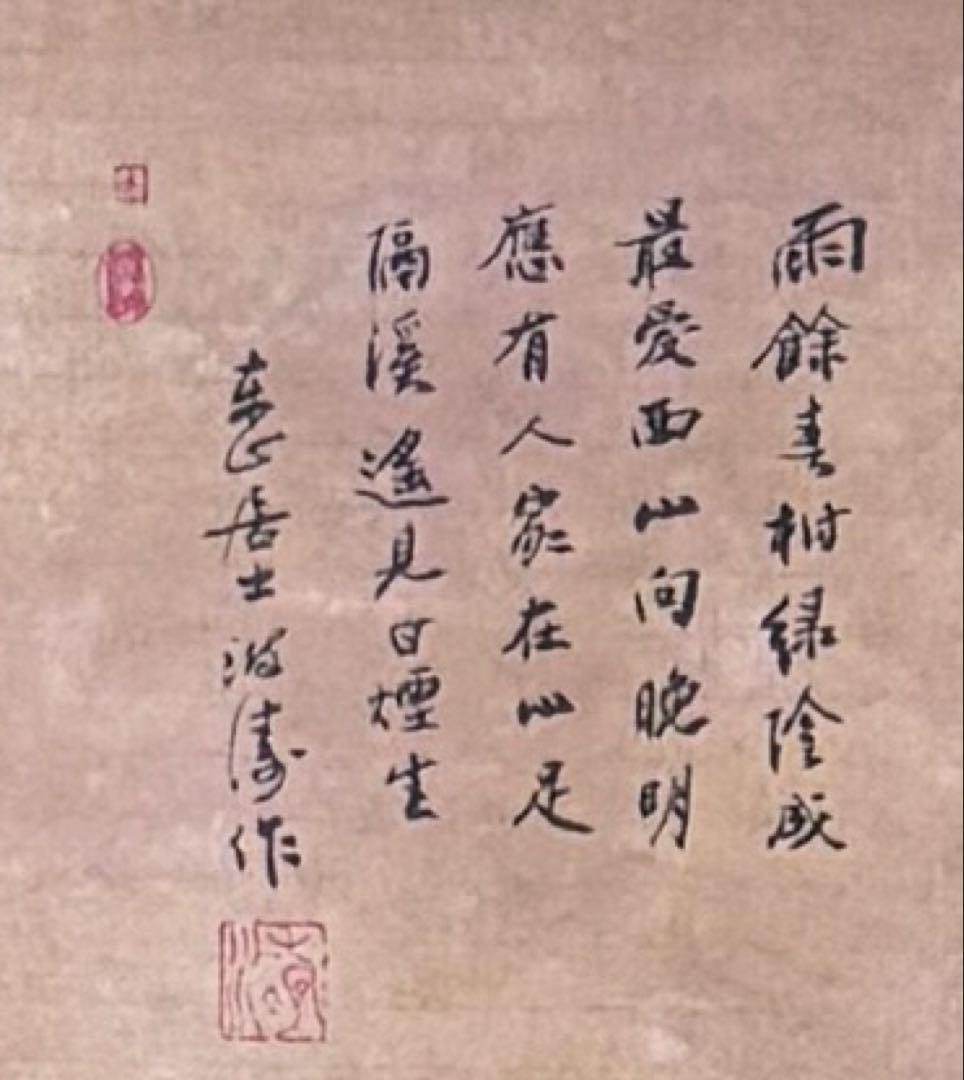 雨餘春樹綠陰成
最愛西山向晚明
應有人家在山足
隔溪遙見白煙生
居士海濤作